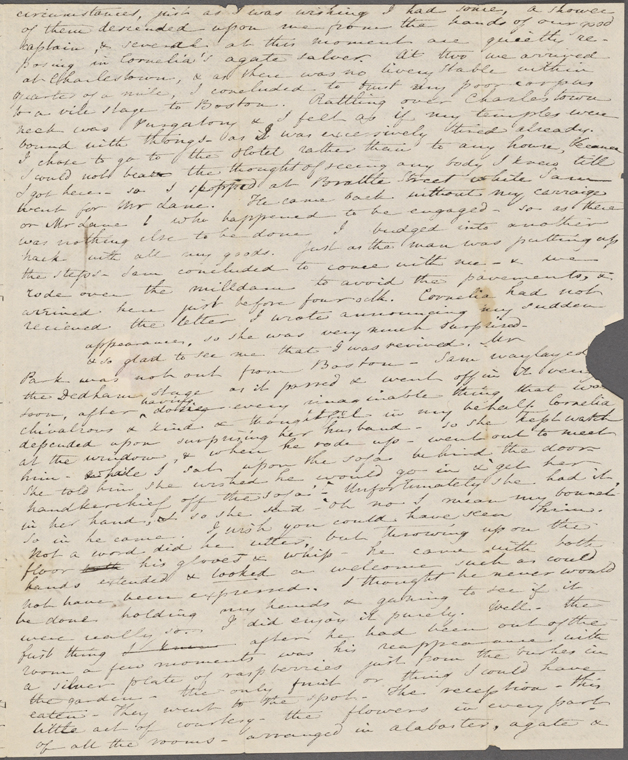 circumstances, just as I was wishing I had some, a shower
of them descended upon me from the hands of our good
Captain, & several at this moment are quietly re-
posing in Cornelia's agate salver. At two we arrived
at Charlestown, & as there was no livery stable within
quarter of a mile, I concluded to trust my poor corpus
to a vile stage to Boston. Rattling over Charlestown
neck was Purgatory & I felt as if my temples were
bound with thongs - as I was excessively tired already.
I chose to go to the Hotel rather than to any house, because
I could not bear the thought of seeing any body I knew till
I got here - so I stopped at Brattle Street while Sam
went for Mr Lane. He came back without any carriage
or Mr Lane! who happened to be engaged - so as there
was nothing else to be done I budged into another
hack with all my goods. Just as the man was putting up
the steps - Sam concluded to come with me - & we
rode over the milldam to avoid the pavements, &
arrived here just before four oclk. Cornelia had not
recieved the letter I wrote announcing my sudden
appearance, so she was very much surprised
& so glad to see me that I was revived. Mr
Park was not out from Boston - Sam waylayed
the Dedham stage as it passed & went off in it very
soon, after having done every imaginable thing that was
chivalrous & kind & thoughtful in my behalf. Cornelia
depended upon surprising her husband - so she kept watch
at the window, & when he rode up - went out to meet
him - while I sat upon the sofa behind the door
She told him she wished he would go in & get her
handkerchief off the sofa - Unfortunately she had it
in her hand, & so she said "oh no I mean my bonnet"
So in he came. I wish you could have seen him.
Not a word did he utter, but throwing upon the
floor his gloves & whip - he came with both
hands extended & looked a welcome such as could
not have been expressed. I thought he never would
be done holding my hands & gazing to see if it
were really so. I did enjoy it purely. Well - the
first thing after he had been out of the
room a few moments was his reappearance with
a silver plate of raspberries just from the bushes in
the garden - the only fruit or thing I could have
eaten - They went to the spot. The reception - this
little act of courtesy - the flowers in every part
of all the rooms - arranged in alabaster, agate &